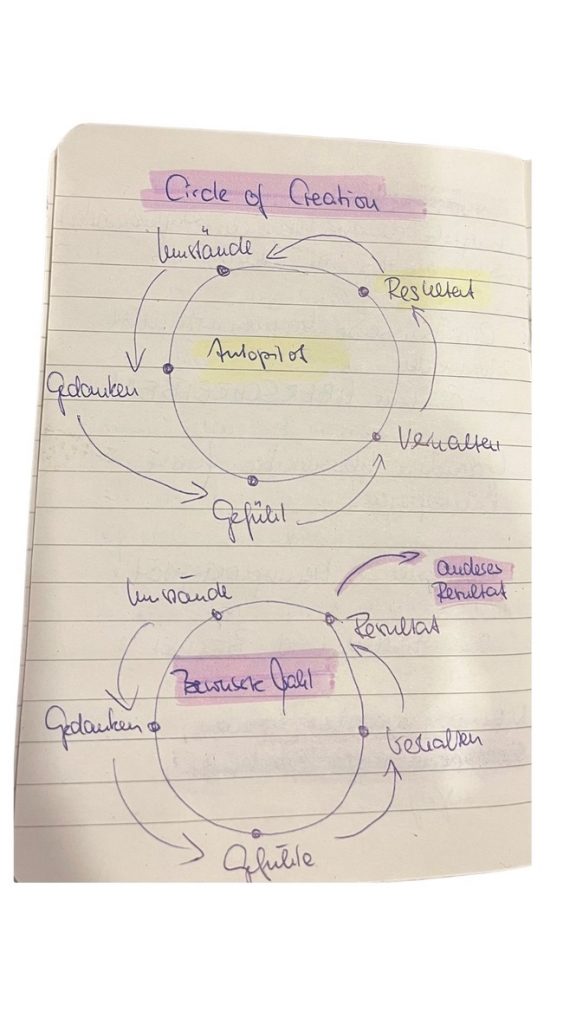 Circle of Creation
Umstände
Resultat
Autopilot
Gedanken
Verhalten
Gefühl
anderes
Resultat
Umstände
Resultat
Bewusste Wahl
Gedanken
Verhalten
Gefühle